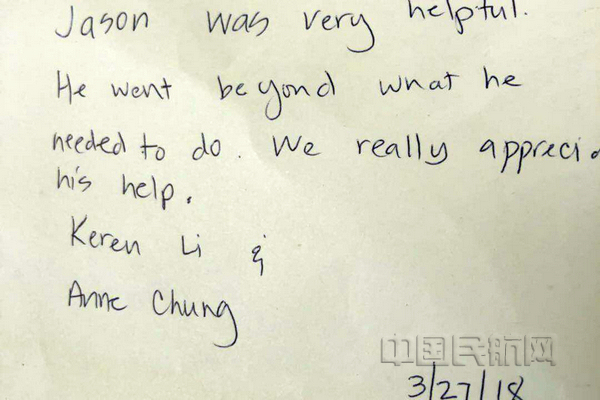 Jason was very helpful.
He went beyond what he
needed to do. We really appreci
his help.
Keren Li &
Anne Chung
中国民航网
3/27/18